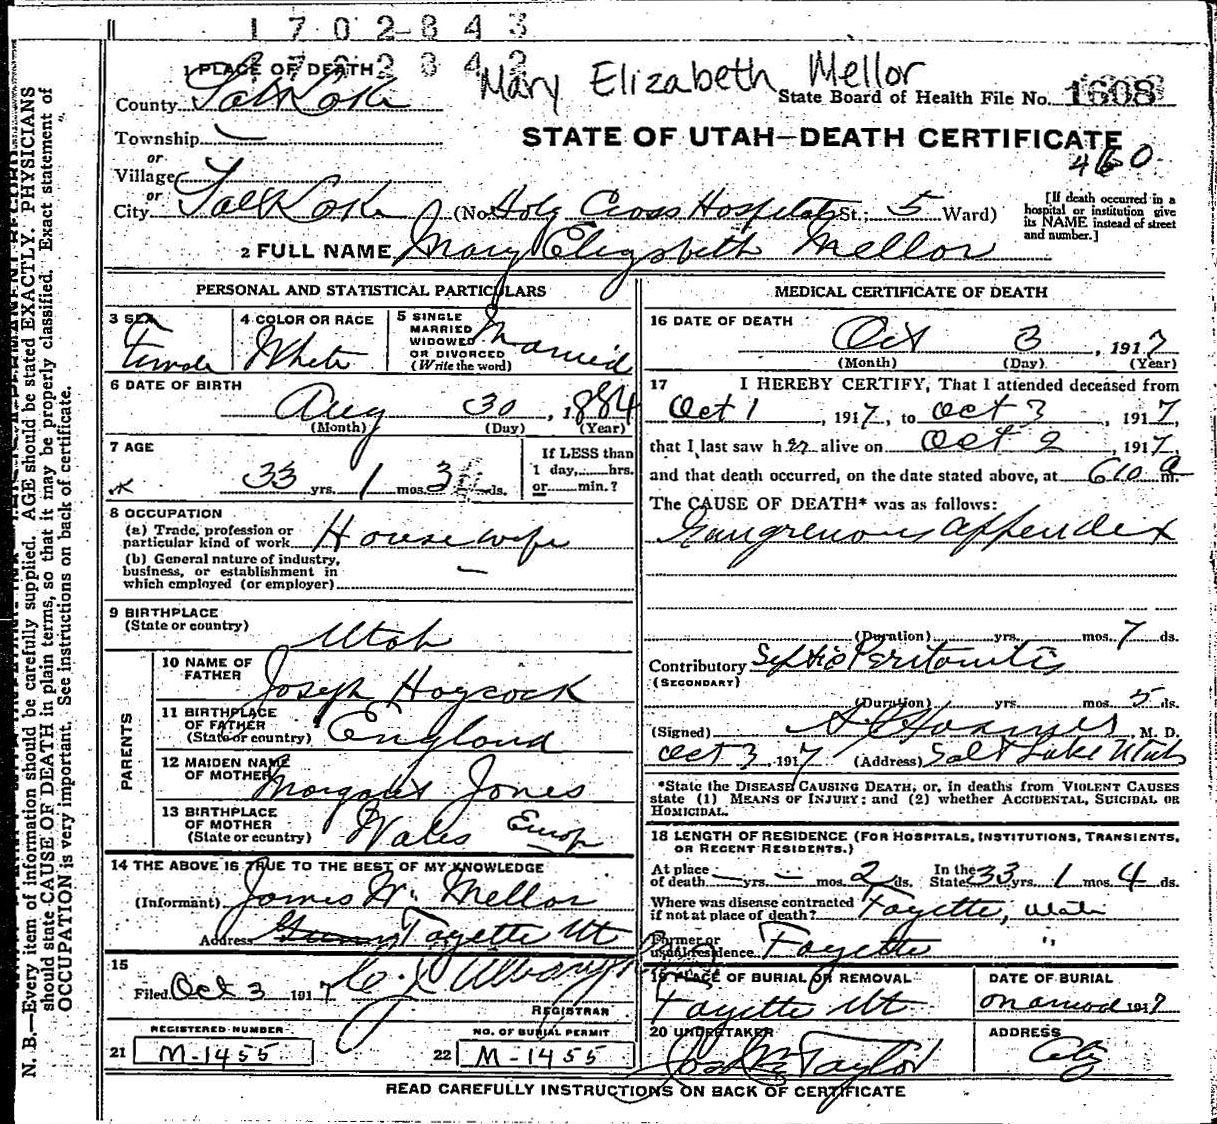 1702843
1 PLACE OF DEATH
Mary Elizabeth Mellor
County Salt Lake
State Board of Health File No. 1608
Township —
STATE OF UTAH—DEATH CERTIFICATE
or
460
Village
or
City Salt Lake (No. Holy Cross Hospital St.; 5 Ward)
[If death occurred in a
hospital or institution give
its NAME instead of street
and number.]
2 FULL NAME Mary Elizabeth Mellor
PERSONAL AND STATISTICAL PARTICULARS
3 SEX
Female
4 COLOR OR RACE
White
5 SINGLE
MARRIED
WIDOWED
OR DIVORCED
(Write the word)
Married
6 DATE OF BIRTH
Aug 30, 1884
(Month) (Day) (Year)
7 AGE
33 yrs. 1 mos. 3 ds.
If LESS than
1 day,......hrs.
or......min.?
8 OCCUPATION
(a) Trade, profession or
particular kind of work House wife
(b) General nature of industry,
business, or establishment in
which employed (or employer) —
9 BIRTHPLACE
(State or country)
Utah
PARENTS
10 NAME OF
FATHER
Joseph Haycock
11 BIRTHPLACE
OF FATHER
(State or country)
England
12 MAIDEN NAME
OF MOTHER
Margaret Jones
13 BIRTHPLACE
OF MOTHER
(State or country)
Wales Europ
14 THE ABOVE IS TRUE TO THE BEST OF MY KNOWLEDGE
(Informant) James W. Mellor
Address Fayette Ut
15
Filed Oct 3 1917
REGISTRAR
REGISTERED NUMBER
21 M-1455
NO. OF BURIAL PERMIT
22 M-1455
MEDICAL CERTIFICATE OF DEATH
16 DATE OF DEATH
Oct 3, 1917
(Month) (Day) (Year)
17 I HEREBY CERTIFY, That I attended deceased from
Oct 1, 1917, to Oct 3, 1917,
that I last saw her alive on Oct 2, 1917
and that death occurred, on the date stated above, at 610 a m.
The CAUSE OF DEATH* was as follows:
Gangrenous appendex
(Duration) yrs. mos. 7 ds.
Contributory Septic Peritonitis
(SECONDARY)
(Duration) yrs. mos. 5 ds.
(Signed) M. D.
Oct 3 1917 (Address) Salt Lake Utah
*State the DISEASE CAUSING DEATH, or, in deaths from VIOLENT CAUSES
state (1) MEANS OF INJURY; and (2) whether ACCIDENTAL, SUICIDAL OR
HOMICIDAL.
18 LENGTH OF RESIDENCE (FOR HOSPITALS, INSTITUTIONS, TRANSIENTS,
OR RECENT RESIDENTS.)
At place
of death — yrs. — mos. 2 ds.
In the
State 33 yrs. 1 mos. 4 ds.
Where was disease contracted
if not at place of death? Fayette, Utah
Former or
usual residence Fayette "
19 PLACE OF BURIAL OR REMOVAL
Fayette Ut
DATE OF BURIAL
1917
20 UNDERTAKER
Jos Wm Taylor
ADDRESS
City
READ CAREFULLY INSTRUCTIONS ON BACK OF CERTIFICATE
N. B.—Every item of information should be carefully supplied. AGE should be stated EXACTLY. PHYSICIANS
should state CAUSE OF DEATH in plain terms, so that it may be properly classified. Exact statement of
OCCUPATION is very important. See instructions on back of certificate.